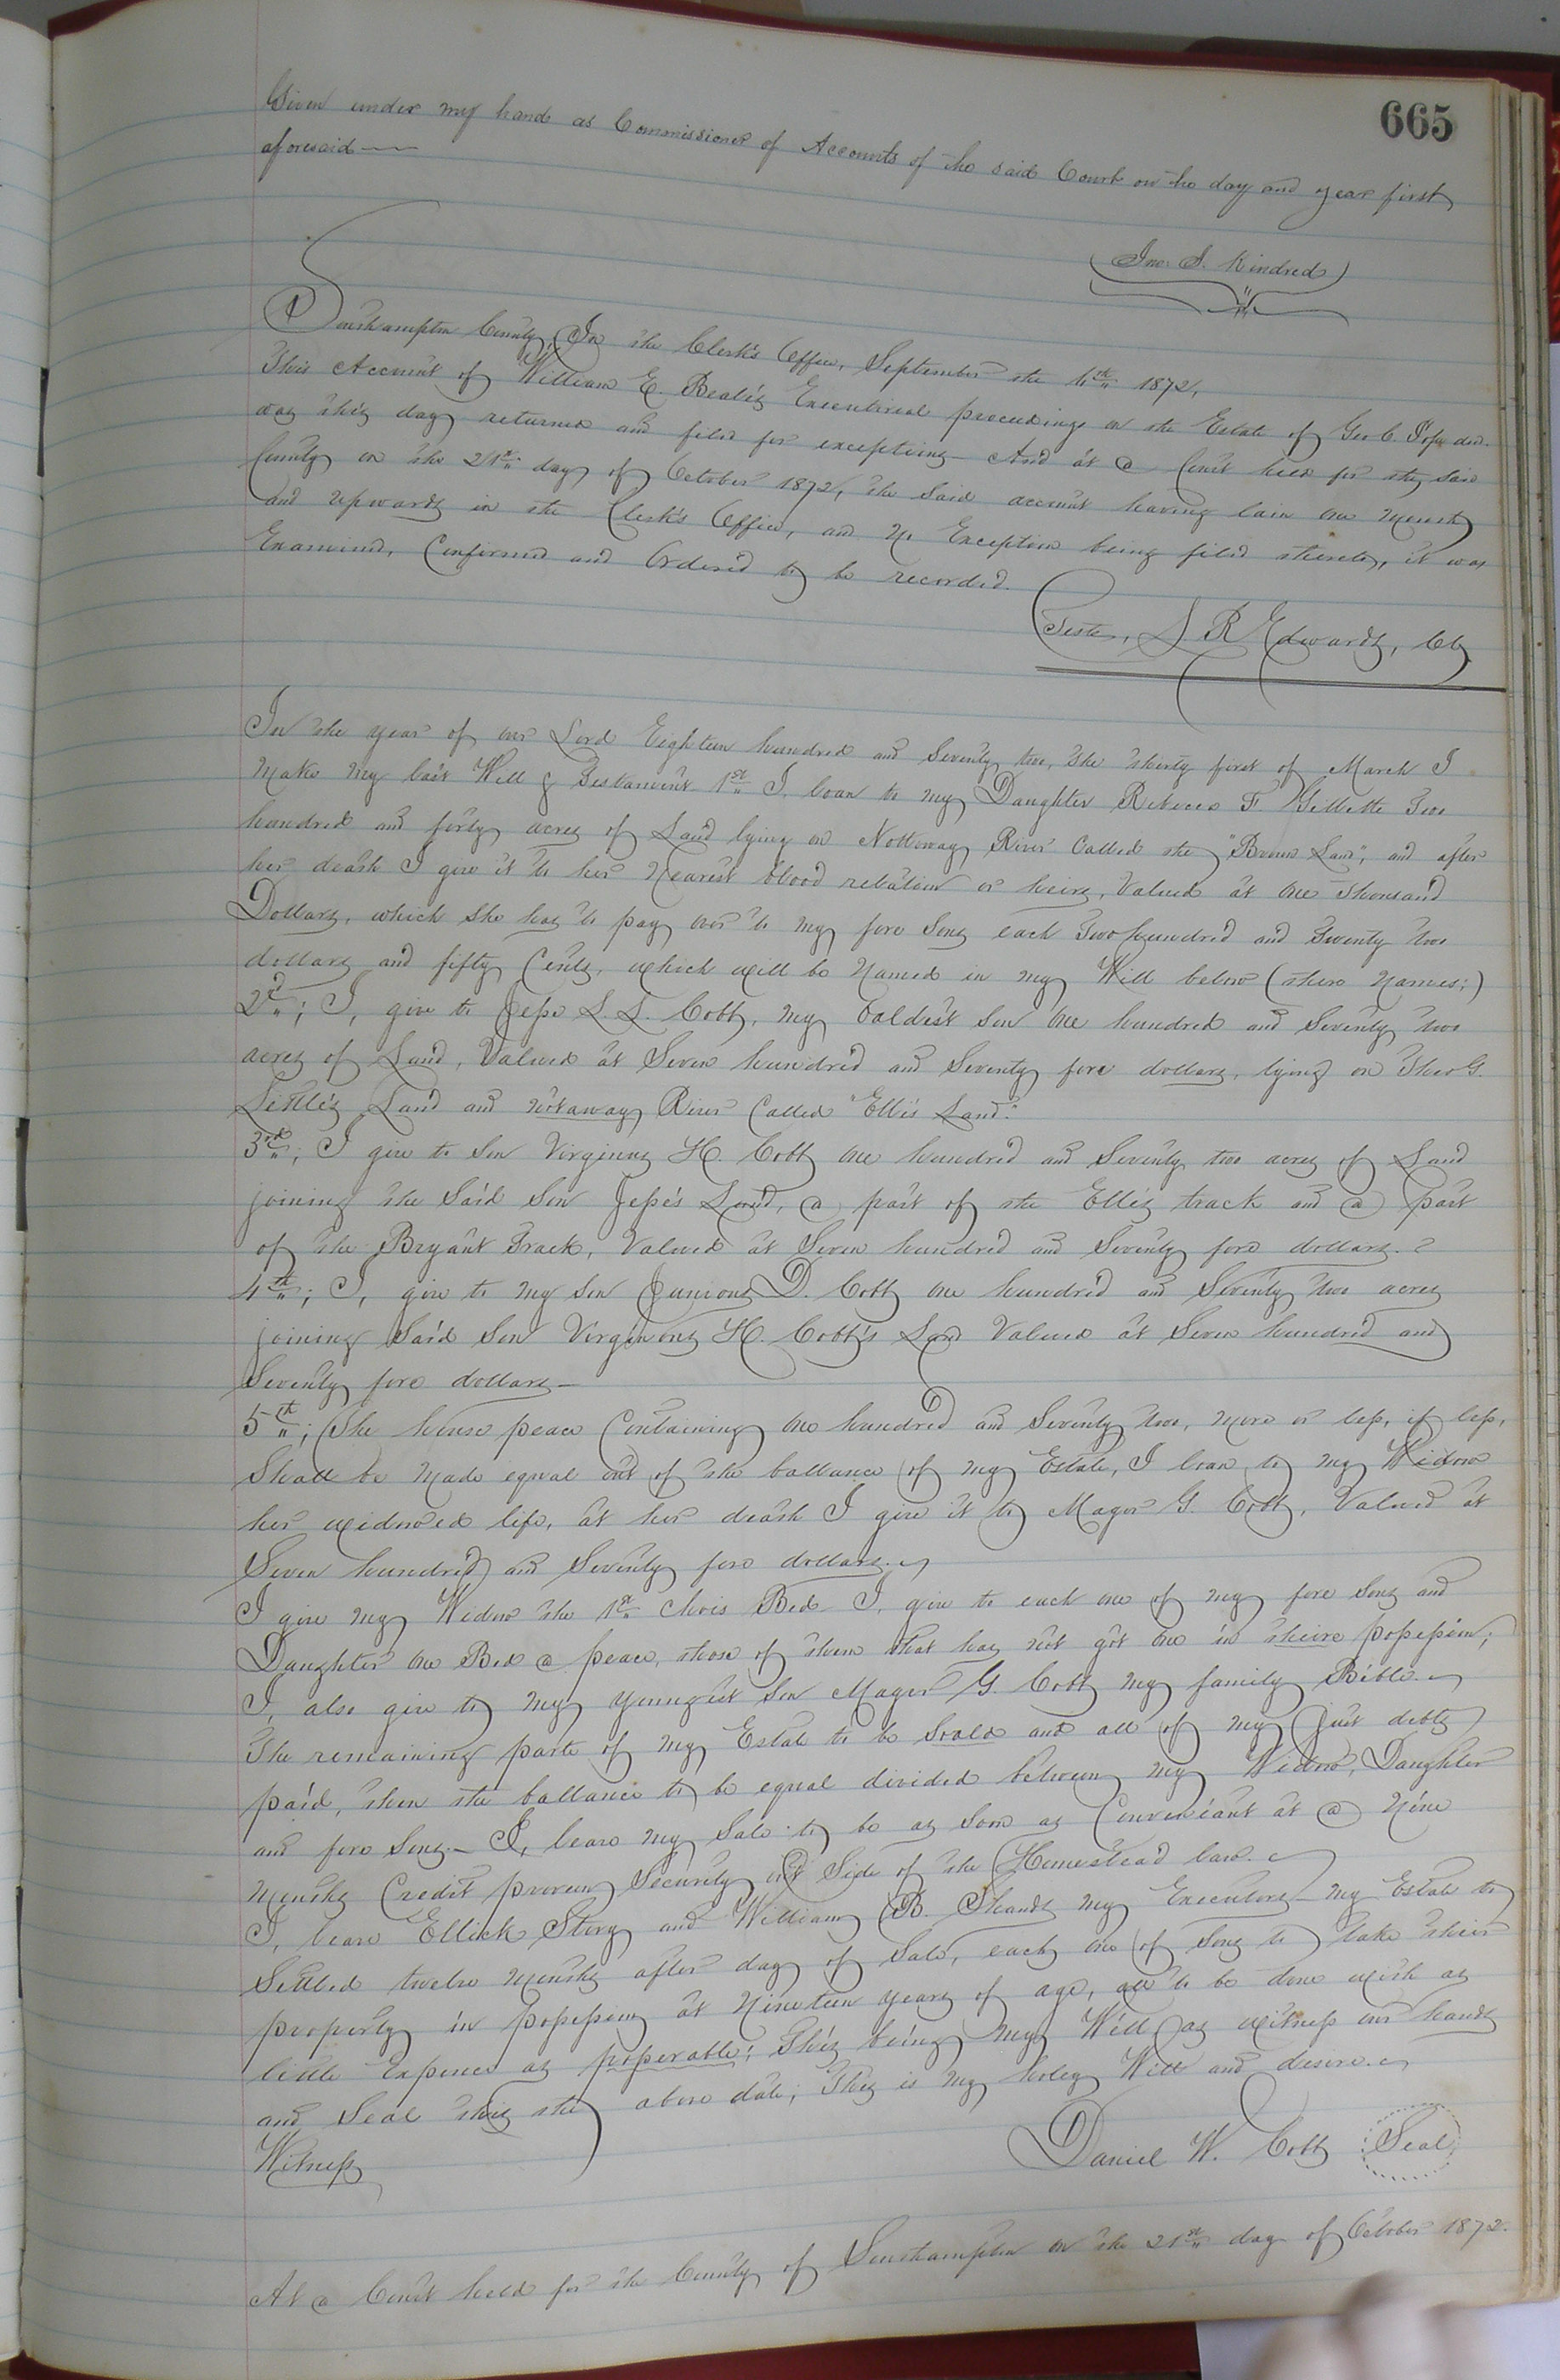 665
Given under my hand as Commissioner of Accounts of the said Court on the day and year first
aforesaid—
Jno. S. Kindred
Southampton County, In the Clerk's Office, September the 4th 1872,
This Account of William E. Beale's Executorial proceedings on the Estate of Geo C. decd.
was this day returned and filed for exceptions— And at a Court held for the said
County on the 21st day of October 1872, the said account having lain one month
and upwards in the Clerk's Office, and no Exception being filed thereto, it was
Examined, Confirmed and Ordered to be recorded.
Teste, L R Edwards, Clk
In the year of our Lord Eighteen hundred and Seventy two, the thirty first of March I
make my last Will & Testament. 1st I, loan to my Daughter Rebecca F. Gillette Two
hundred and forty acres of Land lying on Nottoway River Called the "Brown Land", and after
her death I give it to her Nearest blood relation or heirs, Valued at One Thousand
Dollars, which She has to pay over to my fore Sons each Two hundred and Twenty two
dollars and fifty Cents, which will be Named in my Will below (there Names;)
2nd; I, give to Jesse L. L. Cobb, my ealdest son One hundred and Seventy two
acres of Land, Valued at Seven hundred and Seventy fore dollars, lying on Theo G.
Little's Land and notaway River Called "Ellis Land."
3rd; I give to Son Virginus H. Cobb One hundred and Seventy two acres of Land
joining the Said Son Jesse's Land, a part of the Ellis track and a part
of the Bryant Track, Valued at Seven hundred and Seventy fore dollars.
4th; I, give to my Son Junious D. Cobb One hundred and Seventy two acres
joining Said Son Virginous H. Cobb's Land Valued at Seven hundred and
Seventy fore dollars—
5th; The house peace Containing One hundred and Seventy two, more or less, if less,
Shall be made equal out of the ballance of my Estate, I loan to my Widow
her widowed life, at her death I give it to Mager G. Cobb, Valued at
Seven hundred and Seventy fore dollars.
I give my Widow the 1st Chois Bed. I, give to each one of my fore Sons and
Daughter One Bed a peace, those of them that has not got one in theire possession;
I, also give to my youngest Son Mager G. Cobb my family Bible.
The remaining parte of my Estate to be Soald and all of my just debts
paid, then the ballance to be equal divided between my Widow, Daughter
and fore Sons.— I, leave my Sale to be as Soon as Conveniant at a Nine
Months Credit proven Security out Side of the Homestead law.
I, leave Ellick Story and William B. Shands my Executors— my Estate to
Settled twelve months after day of Sale, each one of Sons to take their
property in possession at Nineteen years of age, all to be done with as
little Expence as posperable; This being my Will as witness our hands
and Seal this the above date; This is my holey Will and desire.
Witness
Daniel W. Cobb Seal
At a Court held for the County of Southampton on the 21st day of October 1872.